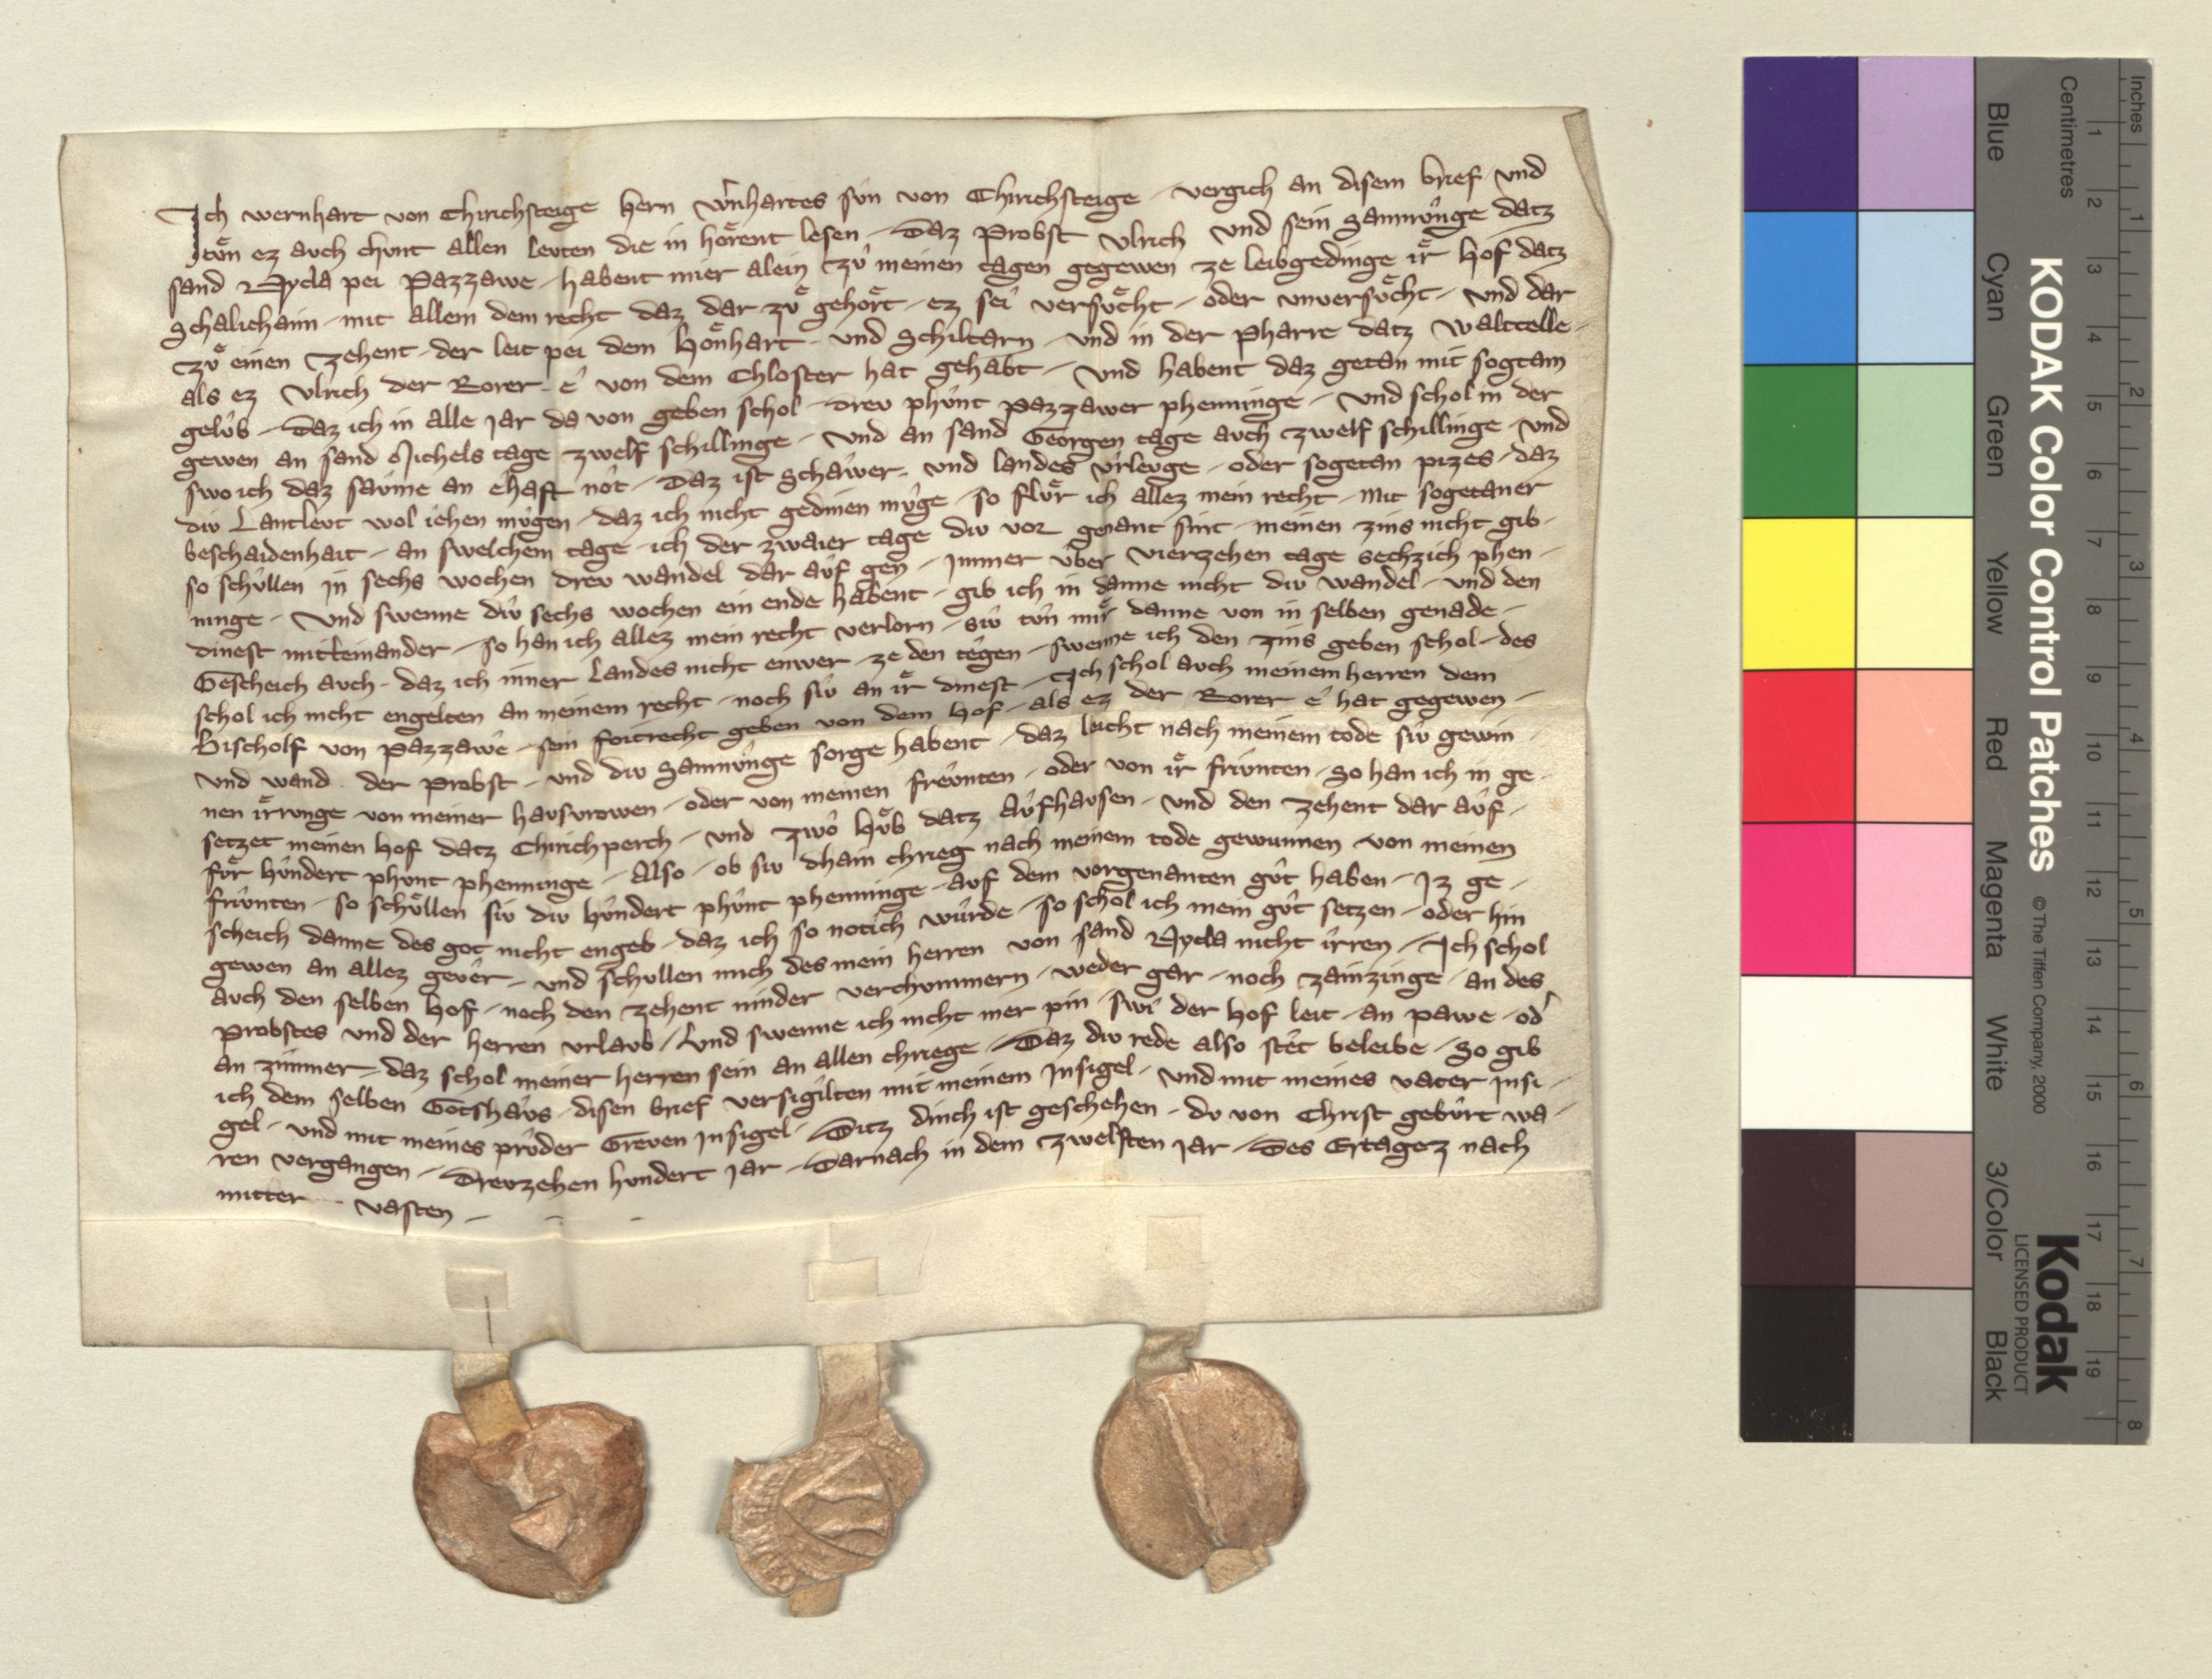 Ich wernhart von Chirichsteige hern w̓nhartes sv̊n von Chirichsteige - vergich an disem brief und
tv̊n ez avch chvnt allen levten die in hoͤrent lesen - Daz Probst Vlrich und sein Samnv̊nge datz
sand Nycla pei Pazzawe - habent mier alein zv̊ meinen tagen gegewen ze leibgedinge iͤr hof datz
Schalichaim - mit allem dem recht daz dar zvͤ gehoͤrt - ez sei versvͤcht - oder unversvͤcht - und dar
zvͤ einen Zehent - der leit pei dem Hoͤnhart - und Schiltarn - und in der Pharre datz Waltcelle -
als ez Vlrich der Rorer - e von dem Chloster hat gehabt - Und habent daz getan mit sogtam
gelv̊b - Daz ich in alle Jar da von geben schol - drev phv̊nt Pazzawer phenninge - Und schol in der
gewen an sand Michels tage zwelf schillinge - Und an sand Georgen tage avch zwelf schillinge - und
swo ich daz savme an ehaft not - Daz ist Schawer - und landes vrlevge - oder sogetan pizes - daz
div Lantlevt wol iehen mvgen - daz ich nicht gedinen mvge - so flvͤr ich allez mein recht - Mit sogetaner
beschaidenhait - an swelchem tage - ich der zwaier tage div vor genant sint - meinen zins nicht gib -
so schv̊llen in sechs wochen drev wandel dar avf gen - Immer v̊ber vierzehen tage sechzich phen -
ninge - Und swenne div sechs wochen ein ende habent - gib ich in danne nicht div wandel - und den
dinest miteinander - so han ich allez mein recht verlorn - siv tv̊n miͤr danne von in selben genade -
Geschech avch - daz ich inner Landes nicht enwer - ze den tegen - swenne ich den zins geben schol - des
schol ich nicht engelten an meinem recht - noch siv an iͤr dinest - Ich schol avch meinem herren dem
Bischolf von Pazzawe - sein foitrecht geben von dem hof - als ez der Rorer e hat gegewen -
Und wand der Probst - und div Samnv̊nge sorge habent - daz leicht nach meinem tode siv gewin -
nen iͤrrvnge von meiner havsvrowen - oder von meinen frevnten - oder von iͤr frivnten - So han ich in ge -
setzet meinen hof datz Chirichperch - und zwo hv̊b datz Avfhavsen - und den zehent dar avf -
fvͤr hv̊ndert phvnt phenninge - Also - ob siv dhain chrieg nach meinem tode gewunnen von meinen
frivnten - so schvͤllen siv div hv̊ndert phv̊nt phenninge - avf dem vorgenanten gv̊t haben - Iz ge -
scheich danne des got nicht engeb - daz ich so notich wv̊rde - so schol ich mein gv̊t setzen - oder hin
gewen an allez gever - und schvllen mich des mein herren von sand Nycla nicht irren - Ich schol
avch den selben hof - noch den zehent ninder verchvmmern - weder gar - noch zainzinge - an des
Probstes und der herren vrlavb - Und swenne ich nicht mer pin - swi der hof leit - an pawe - od̓
an zimmer - daz schol meiner herren sein an allen chriege - Daz div rede also stet beleibe - So gib
ich dem selben Gotshavs - disen brief versigilten mit meinem Insigel - und mit meines vater Insi -
gel - und mit meines prv̊der Greven Insigel - Ditz dinch ist geschehen - do von Christ gebv̊rt wa -
ren vergangen - Drevzehen hvndert jar - Darnach in dem zwelften jar - Des Ertagez nach
mitter vasten -
Inches
Centimetres
1 2 3 4 5 6 7 8
1 2 3 4 5 6 7 8 9 10 11 12 13 14 15 16 17 18 19
KODAK Color Control Patches © The Tiffen Company, 2000
Kodak
LICENSED PRODUCT
Blue Cyan Green Yellow Red Magenta White 3/Color Black